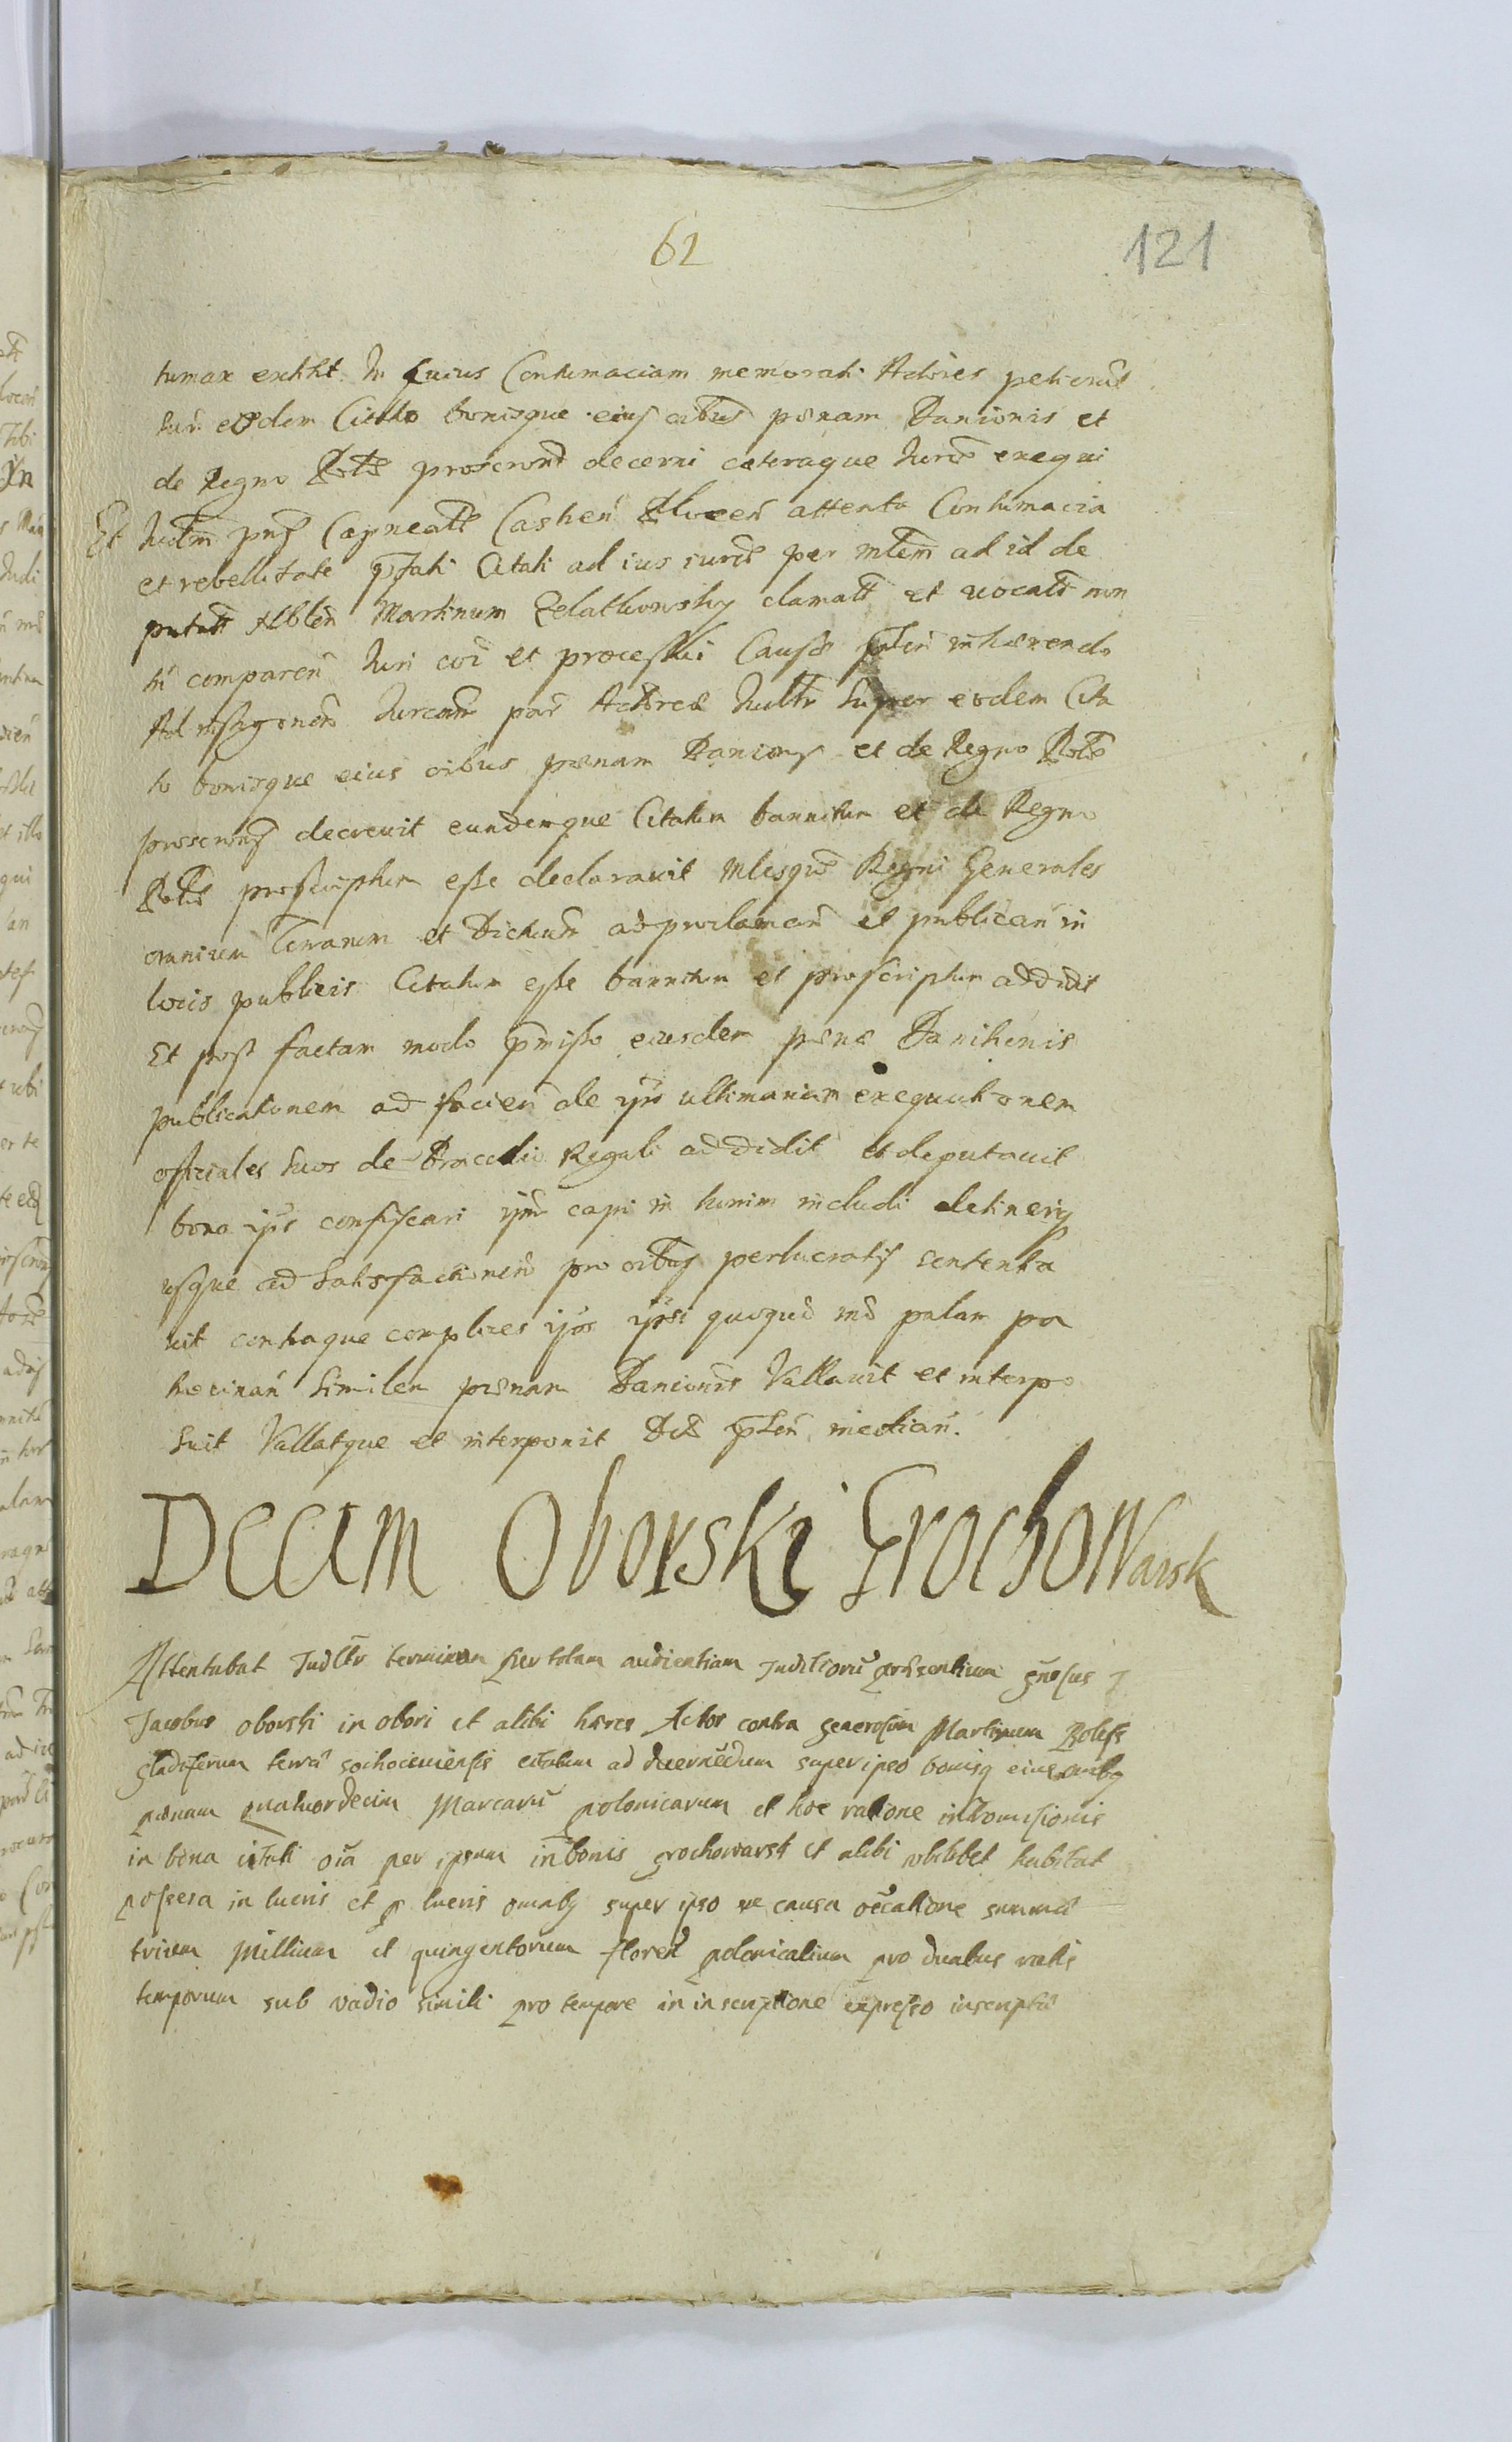 62
121
tumax extitit In Cuius Contumaciam memorati Actores petierūt
eodem Citato bonisque eius oibus pænam Banionis et
de Regno Połæ proscronis decerni cæteraque Iuris exequi
Et Iudm Capneale Castren attenta Contumacia
et rebellitate pfati Citati ad ius iuris per mlem ad id de
putatū Nblem Martinum Zelatkowsky clamati et vocati non
ti comparen Iuri coi et processui Causæ inhærendo
Ad Iurcam par Actoreæ Super eodem Cita
to bonisque eius oibus pænam Banionis et de Regno Połæ
proscronis decrevit eundemque Citatum bannitum et de Regno
Połæ proscriptum esse declaravit Mlesque Regni Generales
omnium Terrarum et ad proclamañ et publicañ in
locis publicis Citatum esse bannitum et proscriptum addidit
Et post factam modo pmisso eiusdem pænæ Banitionis
publicationem ad facien de ipso ultimariam exequutionem
officiales suos de Brachio Regali addidit et deputavit
bona ips confiscari ipm capi in turrim includi detineriq
usque ad satisfactionem pro oibus perlucratis sententia
vit contraque complices ips ipsi quoque mo palam pa
trocinañ similem pænam Banionis Vallavit et interpo
suit Vallatque et interponit Dcti pñtū median.
Decim Oborski Grochowarsk
Attentabat Judltr terminum per totam audientiam Juditiorū præsentium gñosus
Jacobus oborski in obori et alibi hæres Actor contra generosum Martinum Bolesz
gladiferum terræ sochociniensis citatum ad decernēdum super ipso bonisq eius omnibq
pænam quatuordecim Marcarū polonicarum et hoc ratione intromisionis
in bona citati oia per ipsum in bonis grochowarsk et alibi ubilibet habitat
possesa in lucris et p lucris omnibq super ipso ex causa occasione summæ
trium Millium et quingentorum floren polonicalium pro duabus ratis
temporum sub vadio simili pro tempore in inscriptione expresso inscriptæ